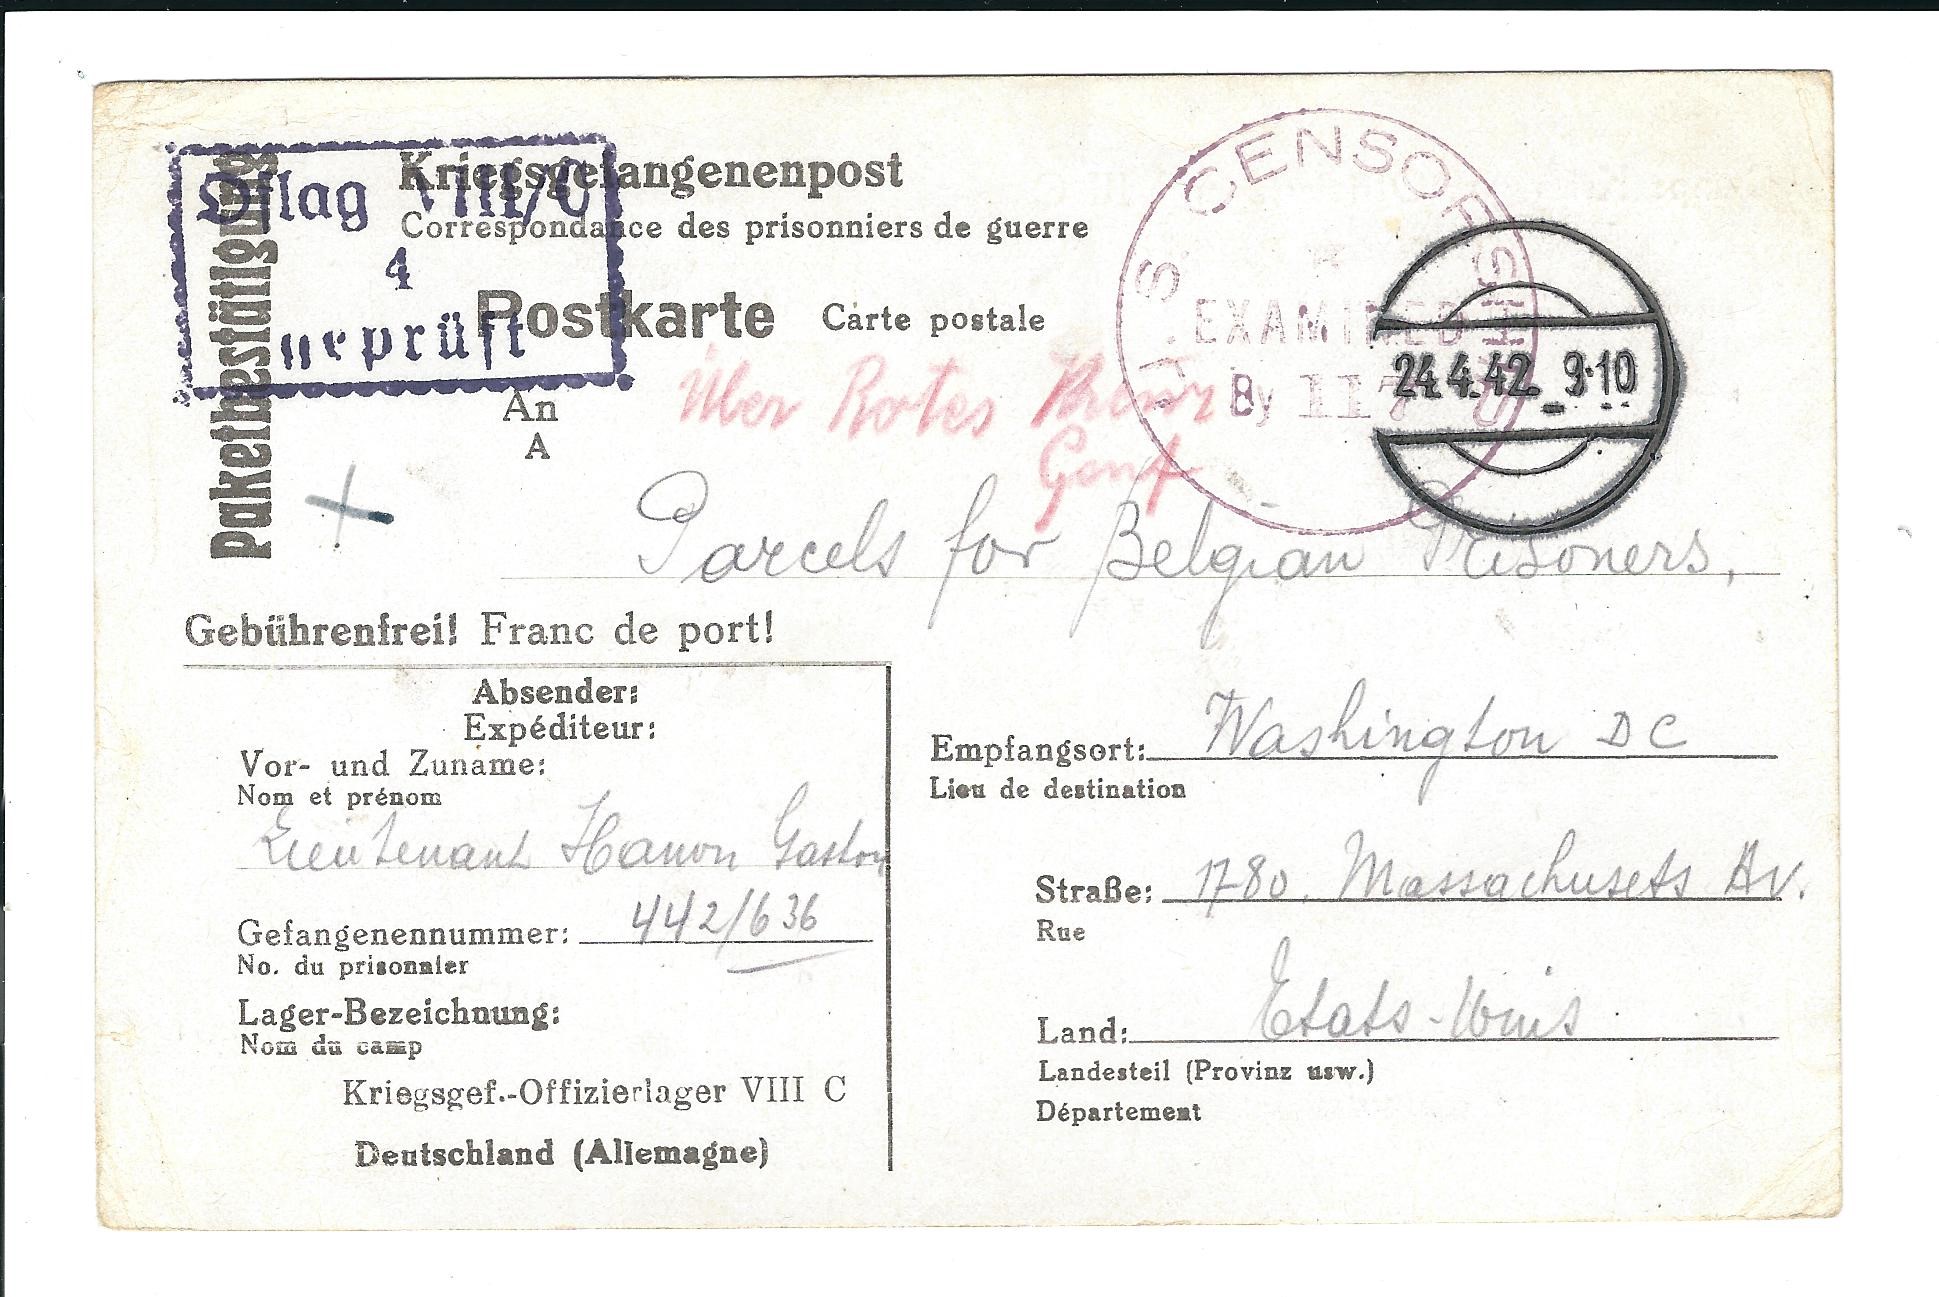 Paketbestätigung
Oflag VIII/C
4
geprüft
Kriegsgefangenenpost
Correspondance des prisonniers de guerre
Postkarte Carte postale
U.S. CENSORSHIP
EXAMINED
By 117
24.4.42. 9-10
Über Rotes Kreuz
Genf
An
A
Parcels for Belgian Prisoners,
Gebührenfrei! Franc de port!
Absender:
Expéditeur:
Vor- und Zuname:
Nom et prénom
Lieutenant Hanon Gaston
Gefangenennummer: 442/636
No. du prisonnier
Lager-Bezeichnung:
Nom du camp
Kriegsgef.-Offizierlager VIII C
Deutschland (Allemagne)
Empfangsort: Washington DC
Lieu de destination
Straße: 1780. Massachusets Av.
Rue
Land: Etats-Unis
Landesteil (Provinz usw.)
Département